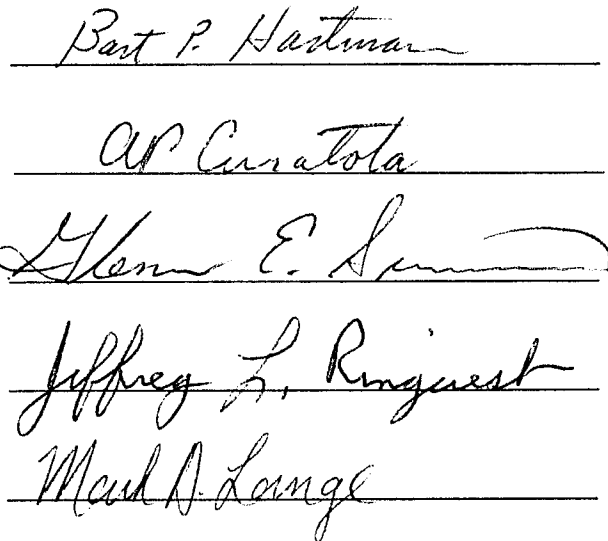 Bart P. Hartman
AP Curatola
Glenn E.
Jeffrey L. Ringuest
Mark D. Lange